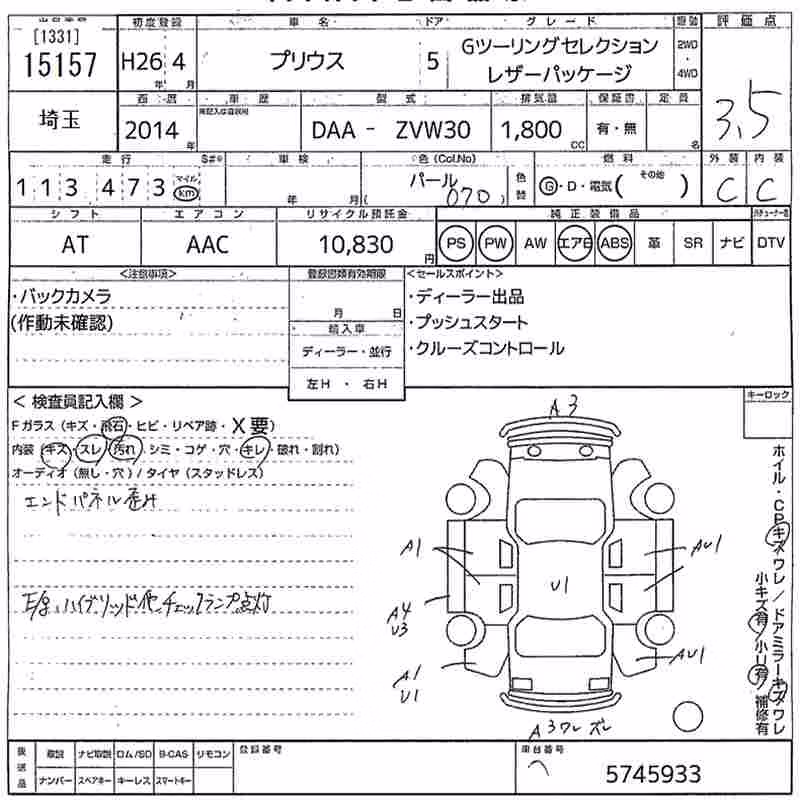 初度登録 車名 ドア グレード 評価点
[1331]
15157 H26年 4月 プリウス 5 Gツーリングセレクション レザーパッケージ 2WD・4WD 3.5
埼玉 西暦 車歴 型式 排気量 保証書 定員
2014年 DAA - ZVW30 1,800CC 有・無 名
走行 S#※ 車検 色(Col.No) 色替 燃料 外装 内装
113473 マイル km 年 月( パール 070 ) G・D・電気( その他 ) C C
シフト エアコン リサイクル預託金 純正装備品
AT AAC 10,830円 PS PW AW エアB ABS 革 SR ナビ DTV
<注意事項> 登録書類有効期限 <セールスポイント>
・バックカメラ
(作動未確認)
月 日
輸入車
ディーラー・並行
左H ・ 右H
・ディーラー出品
・プッシュスタート
・クルーズコントロール
キーロック
< 検査員記入欄 >
Fガラス (キズ・飛石・ヒビ・リペア跡・X要)
内装 (キズ・スレ・汚れ・シミ・コゲ・穴・キレ・破れ・割れ)
オーディオ (無し・穴) / タイヤ (スタッドレス)
エンドパネル歪み
ハイブリッド他チェックランプ点灯
A3
A1
AU1
U1
A4
U3
A1
U1
AU1
A3ワレズレ
ホイル・CPキズワレ / ドアミラーキズワレ
小キズ有 小U有 補修有
後送品 取説 ナビ取説 ロム/SD B-CAS リモコン 登録番号 車台番号
ナンバー スペアキー キーレス スマートキー
5745933